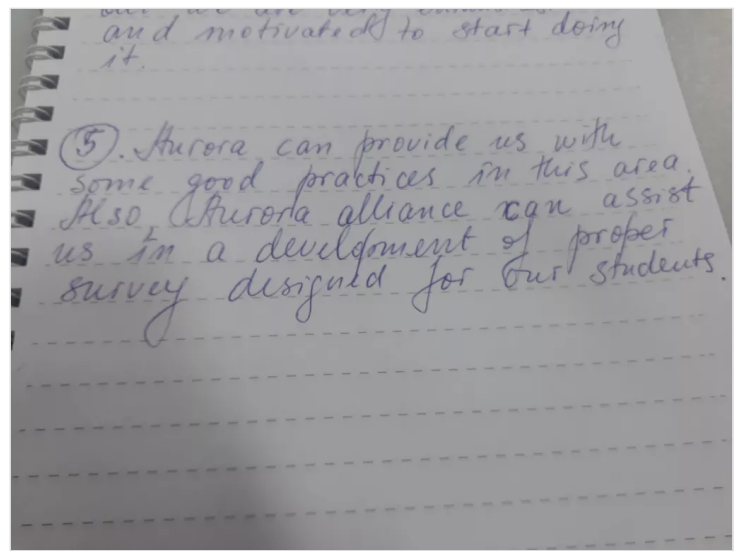 and motivated to start doing
it.
5. Aurora can provide us with
some good practices in this area.
Also, Aurora alliance can assist
us in a development of proper
survey designed for our students.